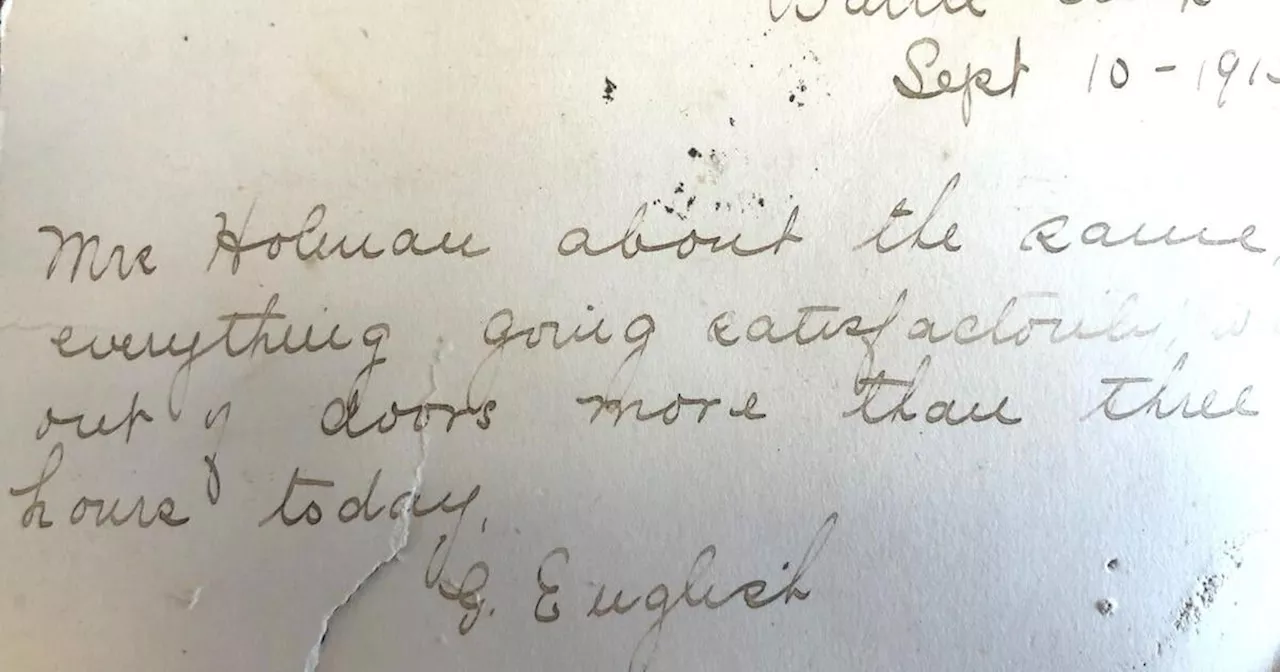 Sept 10-191
Mrs Holman about the same,
everything going satisfactorily,
out of doors more than three
hours today.
G. English